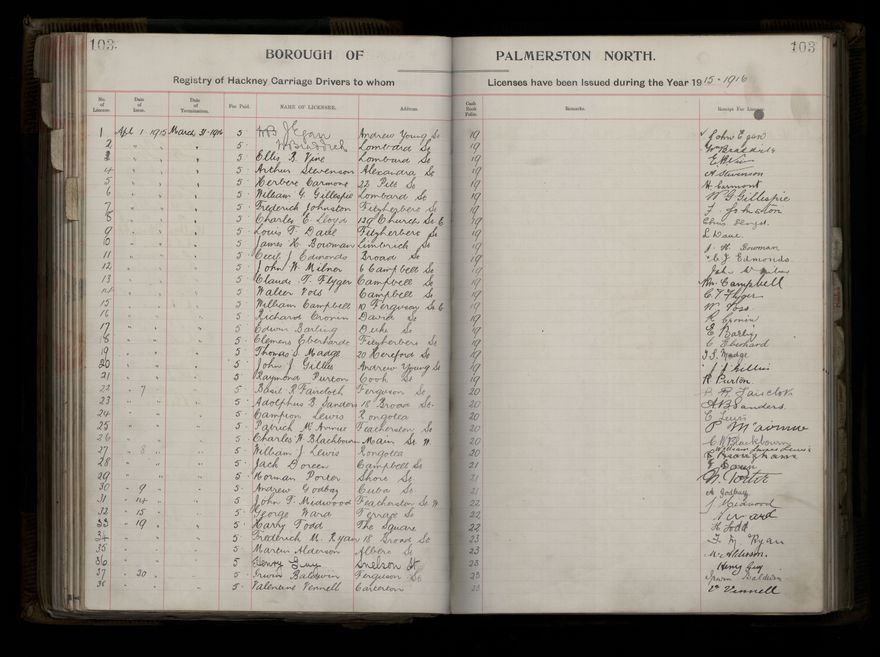 103.
103
BOROUGH OF PALMERSTON NORTH.
Registry of Hackney Carriage Drivers to whom Licenses have been Issued during the Year 1915-1916
No. of License. Date of Issue. Date of Termination. Fee Paid. NAME OF LICENSEE. Address. Cash Book Folio. Remarks. Receipt For License.
1 Apl 1 1915 March 31-1916 5 J Egan Andrew Young St 19 John Egan
2 " " " 5 W Braddick Lombard St 19 Wm Braddick
3 " " " 5 Ellis B Vine Lombard St 19 E B Vine
4 " " " 5 Arthur Stevenson Alexandra St 19 A Stevenson
5 " " " 5 Herbert Carmont 22 Pitt St 19 H. Carmont
6 " " " 5 William G. Gillespie Lombard St 19 W G Gillespie
7 " " " 5 Frederick Johnston Fitzherbert St 19 F Johnston
8 " " " 5 Charles E Lloyd 129 Church St E 19
9 " " " 5 Louis F Dave Fitzherbert St 19 L Dave
10 " " " 5 James H Bowman Limbrick St 19 J. H Bowman
11 " " " 5 Cecil J Edmonds Broad St 19 C J Edmonds
12 " " " 5 John W Milner 6 Campbell St 19 John W Milner
13 " " " 5 Claude T. Flyger Campbell St 19 Wm. Campbell
14 " " " 5 Walter Voss Campbell St 19 C T Flyger
15 " " " 5 William Campbell 10 Ferguson St E 19 W Voss
16 " " " 5 Richard Cronin David St 19 R Cronin
17 " " " 5 Edwin Barling Duke St 19 E Barling
18 " " " 5 Clemens Eberhardt Fitzherbert St 19 C Eberhard
19 " " " 5 Thomas S Madge 20 Hereford St 19 T. S. Madge
20 " " " 5 John J Gillies Andrew Young St 19 J J Gillies
21 " " " 5 Raymond Purton Cook St 19 R Purton
22 " 7 " 5 Basil R Faircloth Ferguson St 20 B R Faircloth
23 " " " 5 Adolphus B Sanders 18 Broad St 20 A B Sanders
24 " " " 5 Campion Lewis Rongotea 20 C Lewis
25 " " " 5 Patrick McAvinue Featherston St 20 P McAvinue
26 " " " 5 Charles W Blackbourn Main St W 20 C W Blackbourn
27 " 8 " 5 William J Lewis Rongotea 20 William James Lewis
28 " " " 5 Jack Doreen Campbell St 21
29 " " " 5 Norman Porter Shore St 21 N. Porter
30 " 9 " 5 Andrew Godbaz Cuba St 21 A Godbaz
31 " 14 " 5 John T. Midwood Featherston St W 22 J Midwood
32 " 15 " 5 George Ward Terrace St 22 G Ward
33 " 19 " 5 Harry Todd The Square 22 H Todd
34 " " " 5 Frederick M. Ryan 18 Broad St 23 F. M Ryan
35 " " " 5 Martin Alderson Albert St 23 M. Alderson.
36 " " " 5 Henry Guy Snelson St 23 Henry Guy
37 " 20 " 5 Irwin Baldwin Ferguson St 23 Irwin Baldwin
38 " " " 5 Valentine Vennell Carterton 23 V Vennell